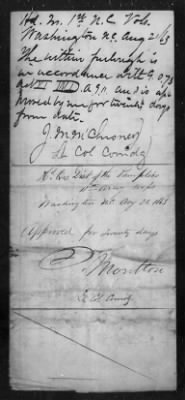 Hd. Qrs. 1st N.C. Vols.
Washington N.C. Aug 21/63
The within furlough is
in accordance with G.O. 73
A.G.O. and is ap
proved by me for twenty days
from date.
J. M. McChesney
Lt Col Comdg
Hd Qrs Dist of the Pamplico
Army Corps
Washington N.C. Aug 21. 1863
Approved for twenty days
Moulton
Lt Col Comdg